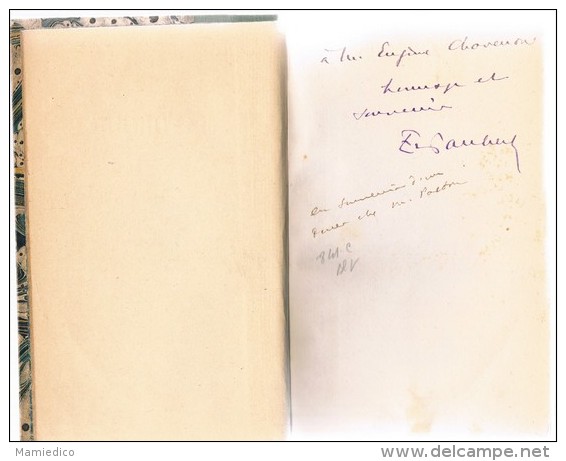 à Mr Eugène Chavenon
hommage et
souvenir
E. Gaubert
en souvenir d'un
diner chez M.
Mamiedico
www.delcampe.net